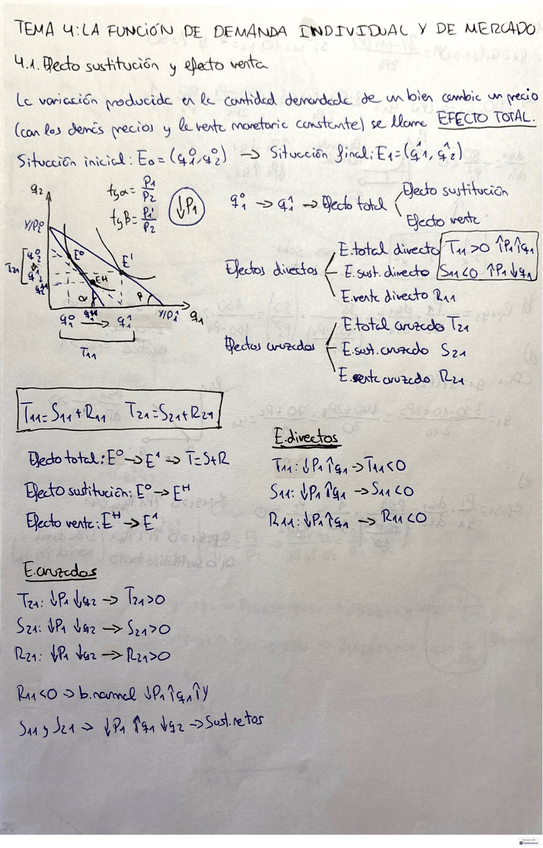 TEMA 4: LA FUNCIÓN DE DEMANDA INDIVIDUAL Y DE MERCADO
4.1. Efecto sustitución y efecto renta
La variación producida en la cantidad demandada de un bien cambie un precio
(con los demás precios y la renta monetaria constante) se llama EFECTO TOTAL.
Situación inicial: E0 = (q1^0, q2^0) → Situación final: E1 = (q1^1, q2^1)
q2
tgα = P1/P2
tgβ = P1'/P2
↓P1
q1^0 → q1^1 → Efecto total
Efecto sustitución
Efecto renta
Y/P2
E0
E1
EH
T21
α
β
q1^0 → q1^1
Y/P1
q1
T11
Efectos directos
E.total directo T11>0 ↑P1↑q1
E.sust.directo S11<0 ↑P1↓q1
E.renta directo R11
Efectos cruzados
E.total cruzado T21
E.sust.cruzado S21
E.renta cruzado R21
T11=S11+R11 T21=S21+R21
Efecto total: E0 → E1 → T=S+R
Efecto sustitución: E0 → EH
Efecto renta: EH → E1
E.directos
T11: ↓P1 ↑q1 → T11<0
S11: ↓P1 ↑q1 → S11<0
R11: ↓P1 ↑q1 → R11<0
E.cruzados
T21: ↓P1 ↓q2 → T21>0
S21: ↓P1 ↓q2 → S21>0
R21: ↓P1 ↓q2 → R21>0
R11<0 → b.normal ↓P1 ↑q1 ↑Y
S11 y S21 → ↓P1 ↑q1 ↓q2 → Sust.netos